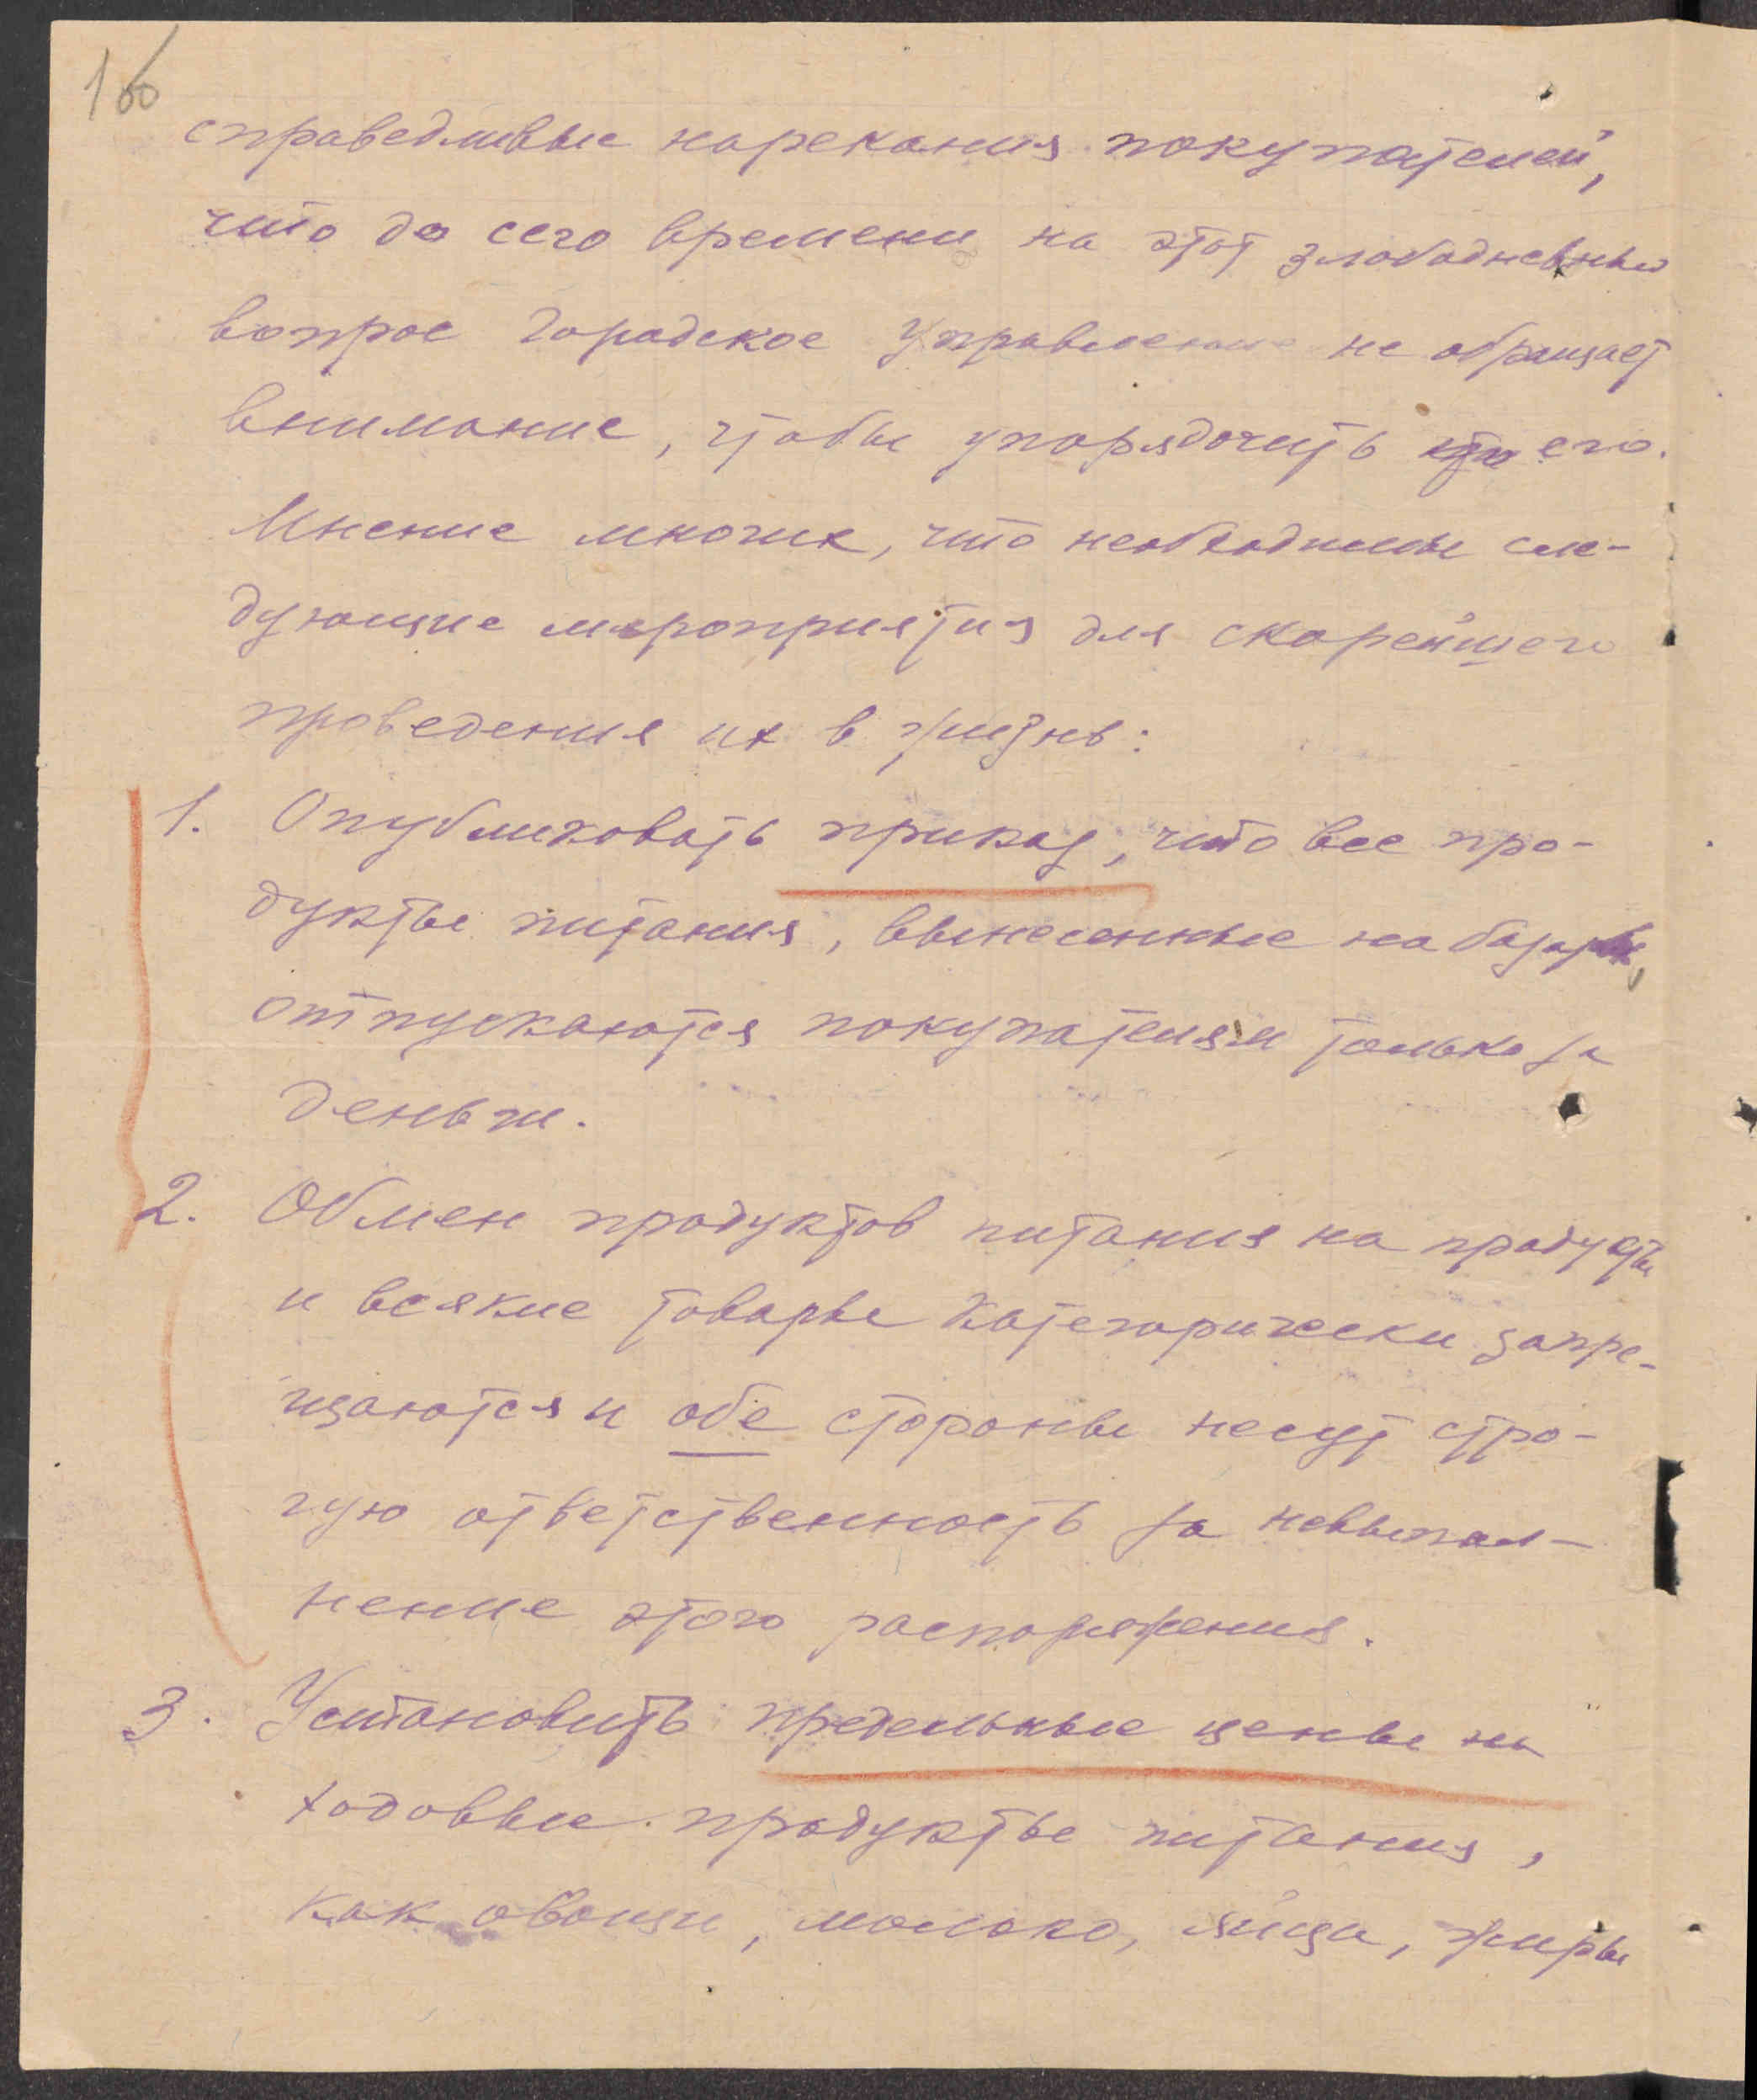 1об
справедливые нарекания покупателей,
что до сего времени на этот злободневный
вопрос Городское Управление не обращает
внимание, чтобы упорядочить его.
Мнение многих, что необходимы сле-
дующие мероприятия для скорейшего
проведения их в жизнь:
1. Опубликовать приказ, что все про-
дукты питания, вынесенные на базары,
отпускаются покупателям только за
деньги.
2. Обмен продуктов питания на продукты
и всякие товары категорически запре-
щаются и обе стороны несут стро-
гую ответственность за невыпол-
нение этого распоряжения.
3. Установить предельные цены на
ходовые продукты питания,
как овощи, молоко, яйца, жиры